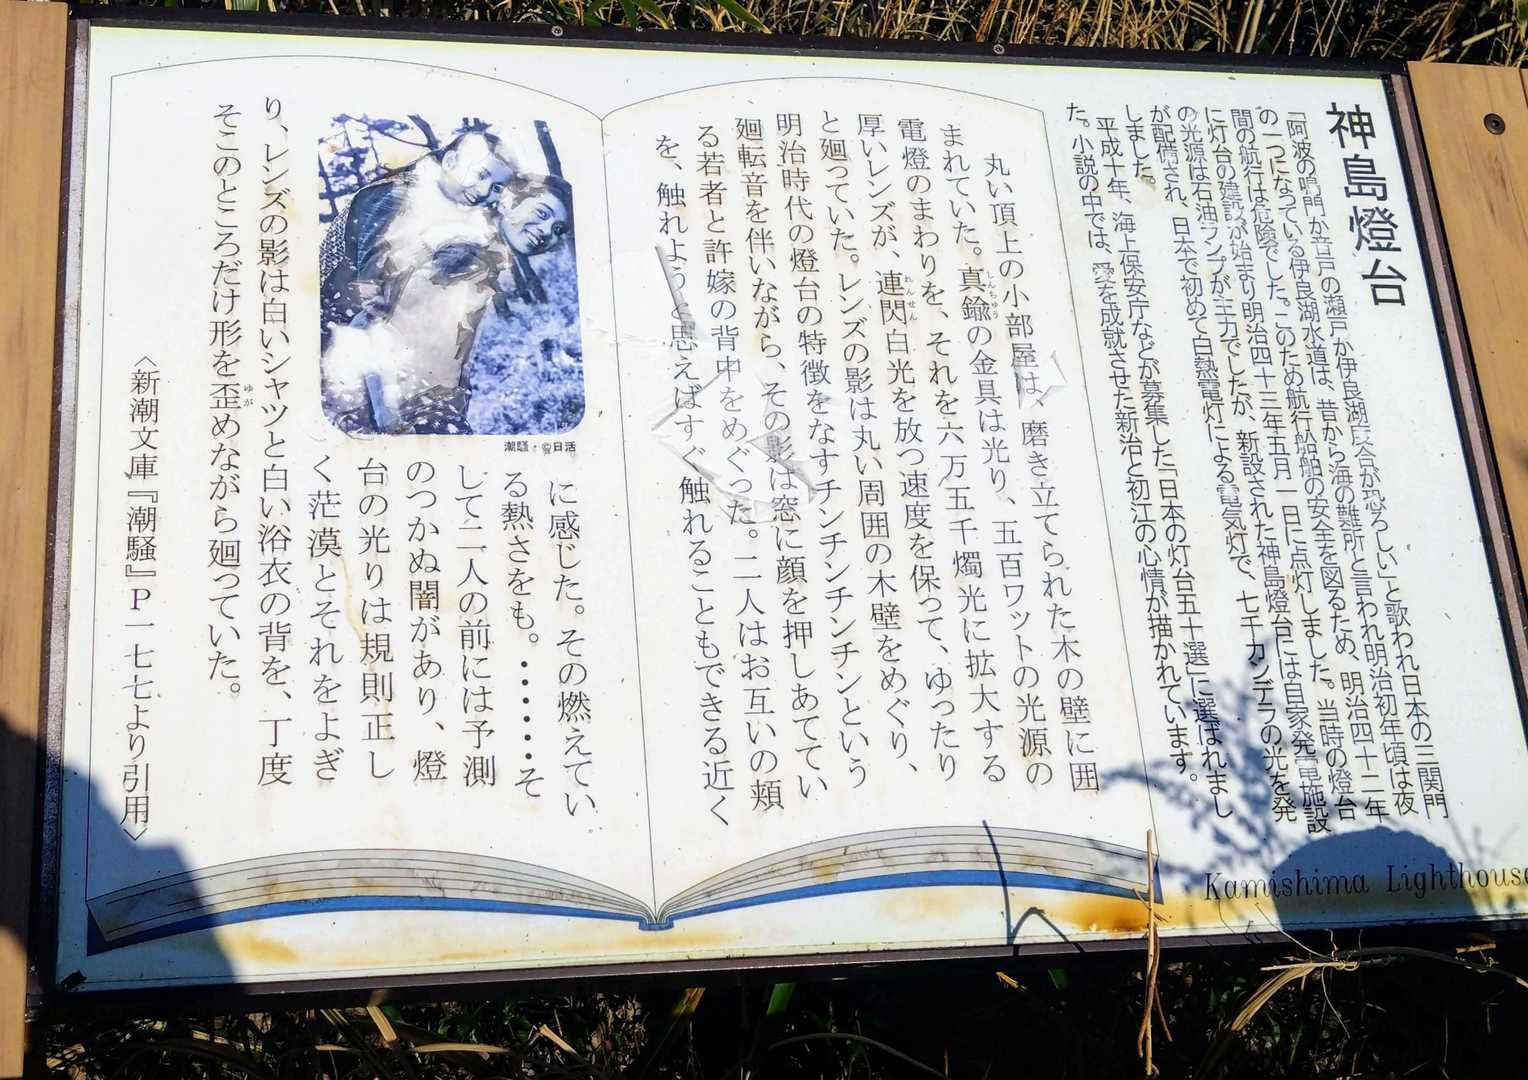 神島燈台
「阿波の鳴門か音戸の瀬戸か伊良湖度合が恐ろしい」と歌われ日本の三関門
の一つになっている伊良湖水道は、昔から海の難所と言われ明治初年頃は夜
間の航行は危険でした。このため航行船舶の安全を図るため、明治四十二年
に灯台の建設が始まり明治四十三年五月一日に点灯しました。当時の燈台
の光源は石油ランプが主力でしたが、新設された神島燈台には自家発電施設
が配備され、日本で初めて白熱電灯による電気灯で、七千カンデラの光を発
しました。
平成十年、海上保安庁などが募集した「日本の灯台五十選」に選ばれまし
た。小説の中では、愛を成就させた新治と初江の心情が描かれています。
Kamishima Lighthouse
丸い頂上の小部屋は、磨き立てられた木の壁に囲
まれていた。真鍮の金具は光り、五百ワットの光源の
しんちゅう
電燈のまわりを、それを六万五千燭光に拡大する
厚いレンズが、連閃白光を放つ速度を保って、ゆったり
れんせん
と廻っていた。レンズの影は丸い周囲の木壁をめぐり、
明治時代の燈台の特徴をなすチンチンチンチンという
廻転音を伴いながら、その影は窓に顔を押しあててい
る若者と許嫁の背中をめぐった。二人はお互いの頬
を、触れようと思えばすぐ触れることもできる近く
に感じた。その燃えてい
る熱さをも。・・・・・・・そ
して二人の前には予測
のつかぬ闇があり、燈
台の光りは規則正し
く茫漠とそれをよぎ
り、レンズの影は白いシャツと白い浴衣の背を、丁度
そこのところだけ形を歪めながら廻っていた。
ゆが
潮騒・©日活
〈新潮文庫『潮騒』P一七七より引用〉